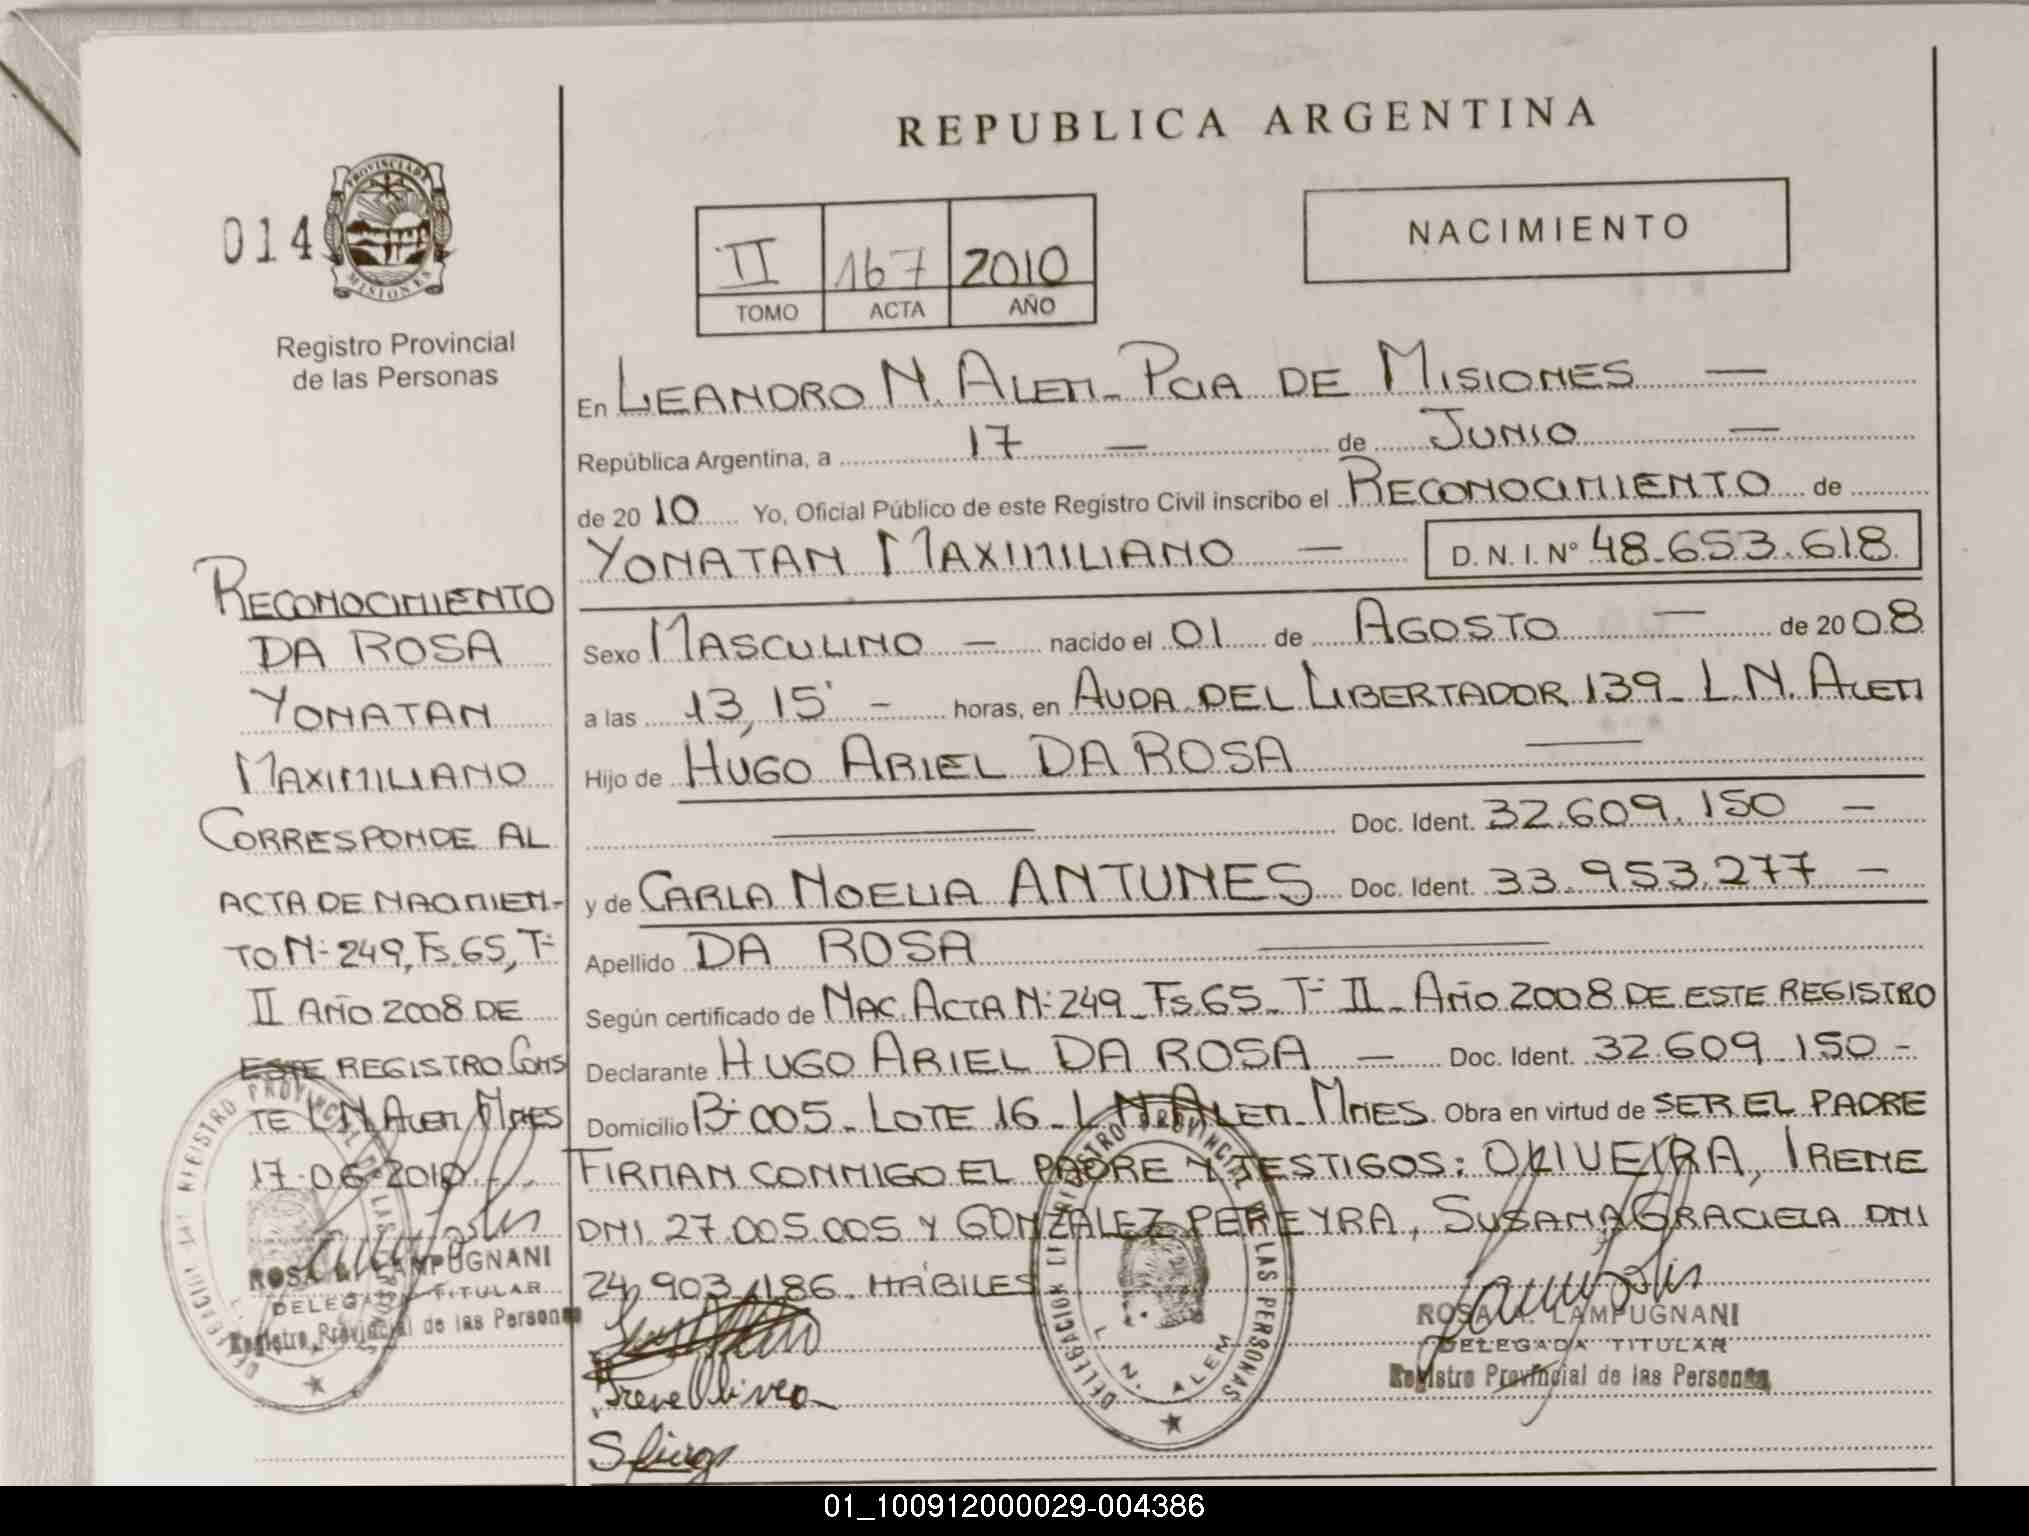 REPUBLICA ARGENTINA
014
PROVINCIA DE MISIONES
Registro Provincial
de las Personas
II 167 2010
TOMO ACTA AÑO
NACIMIENTO
En LEANDRO N. ALEM - PCIA DE MISIONES —
República Argentina, a 17 — de JUNIO —
de 2010 Yo, Oficial Público de este Registro Civil inscribo el RECONOCIMIENTO de
YONATAN MAXIMILIANO — D. N. I. Nº 48.653.618
Sexo MASCULINO — nacido el 01 de AGOSTO — de 2008
a las 13,15' - horas, en AVDA DEL LIBERTADOR 139 - L. N. ALEM
Hijo de HUGO ARIEL DA ROSA —
— Doc. Ident. 32.609.150 —
y de CARLA NOELIA ANTUNES Doc. Ident. 33.953.277 —
Apellido DA ROSA —
Según certificado de NAC. ACTA Nº 249 - Fs. 65 - Tº II - AÑO 2008 DE ESTE REGISTRO
Declarante HUGO ARIEL DA ROSA — Doc. Ident. 32.609.150 -
Domicilio Bº 005 - LOTE 16 - L N ALEM - MNES. Obra en virtud de SER EL PADRE
FIRMAN CONMIGO EL PADRE Y TESTIGOS: OLIVEIRA, IRENE
DNI 27.005.005 Y GONZALEZ PEREYRA, SUSANA GRACIELA DNI
24.903.186. HÁBILES
Irene Olivera
RECONOCIMIENTO
DA ROSA
YONATAN
MAXIMILIANO
CORRESPONDE AL
ACTA DE NACIMIEN-
TO Nº 249, Fs. 65, Tº
II AÑO 2008 DE
ESTE REGISTRO CONS
TE L N ALEM MNES
17-06-2010
ROSA A. LAMPUGNANI
DELEGADA TITULAR
Registro Provincial de las Personas
DELEGACION REGISTRO PROVINCIAL DE LAS PERSONAS
L. N. ALEM
ROSA A. LAMPUGNANI
DELEGADA TITULAR
Registro Provincial de las Personas
01_100912000029-004386